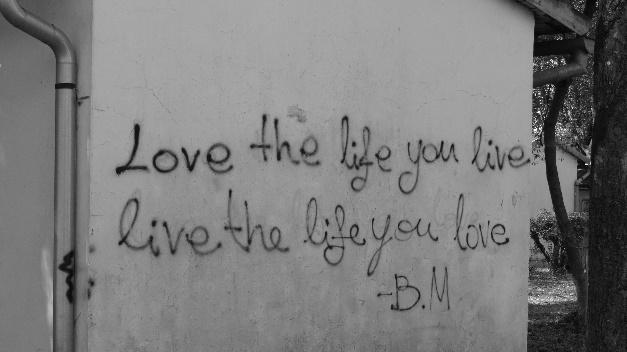 Love the life you live
live the life you love
-B.M